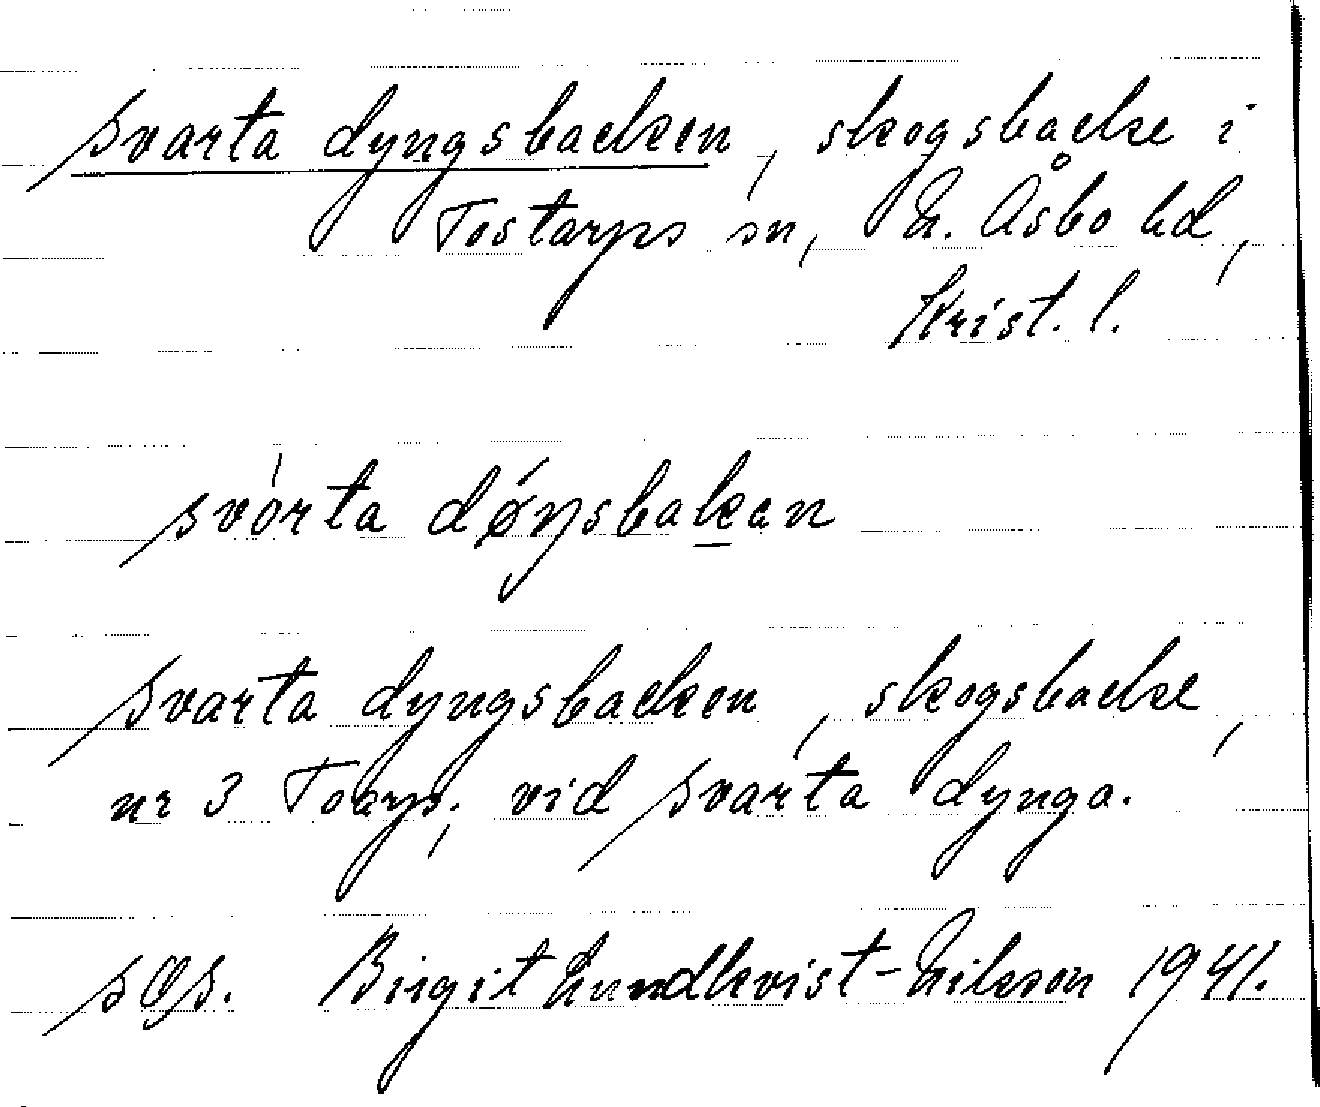 svarta dyngsbacken, skogsbacke i
Tostarps sn, N. Åsbo hd,
Krist. l.
svórta dǿŋsbakan
svarta dyngsbacken, skogsbacke,
nr 3 Toarp; vid svarta dynga.
Birgit Lundkvist-Nilsson 1941.